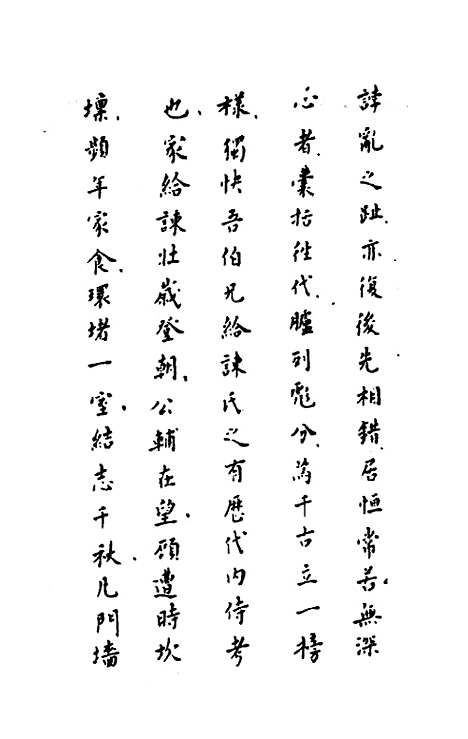 誖亂之趾亦復後先相錯居恒常苦無深
心者囊括徃代臚列彪分為千古立一榜
様獨快吾伯兄給諫氏之有歷代内侍考
也家給諫壯歲登朝公輔在望頋遭時坎
壈頻年家食環堵一室結志千秋凡門墻